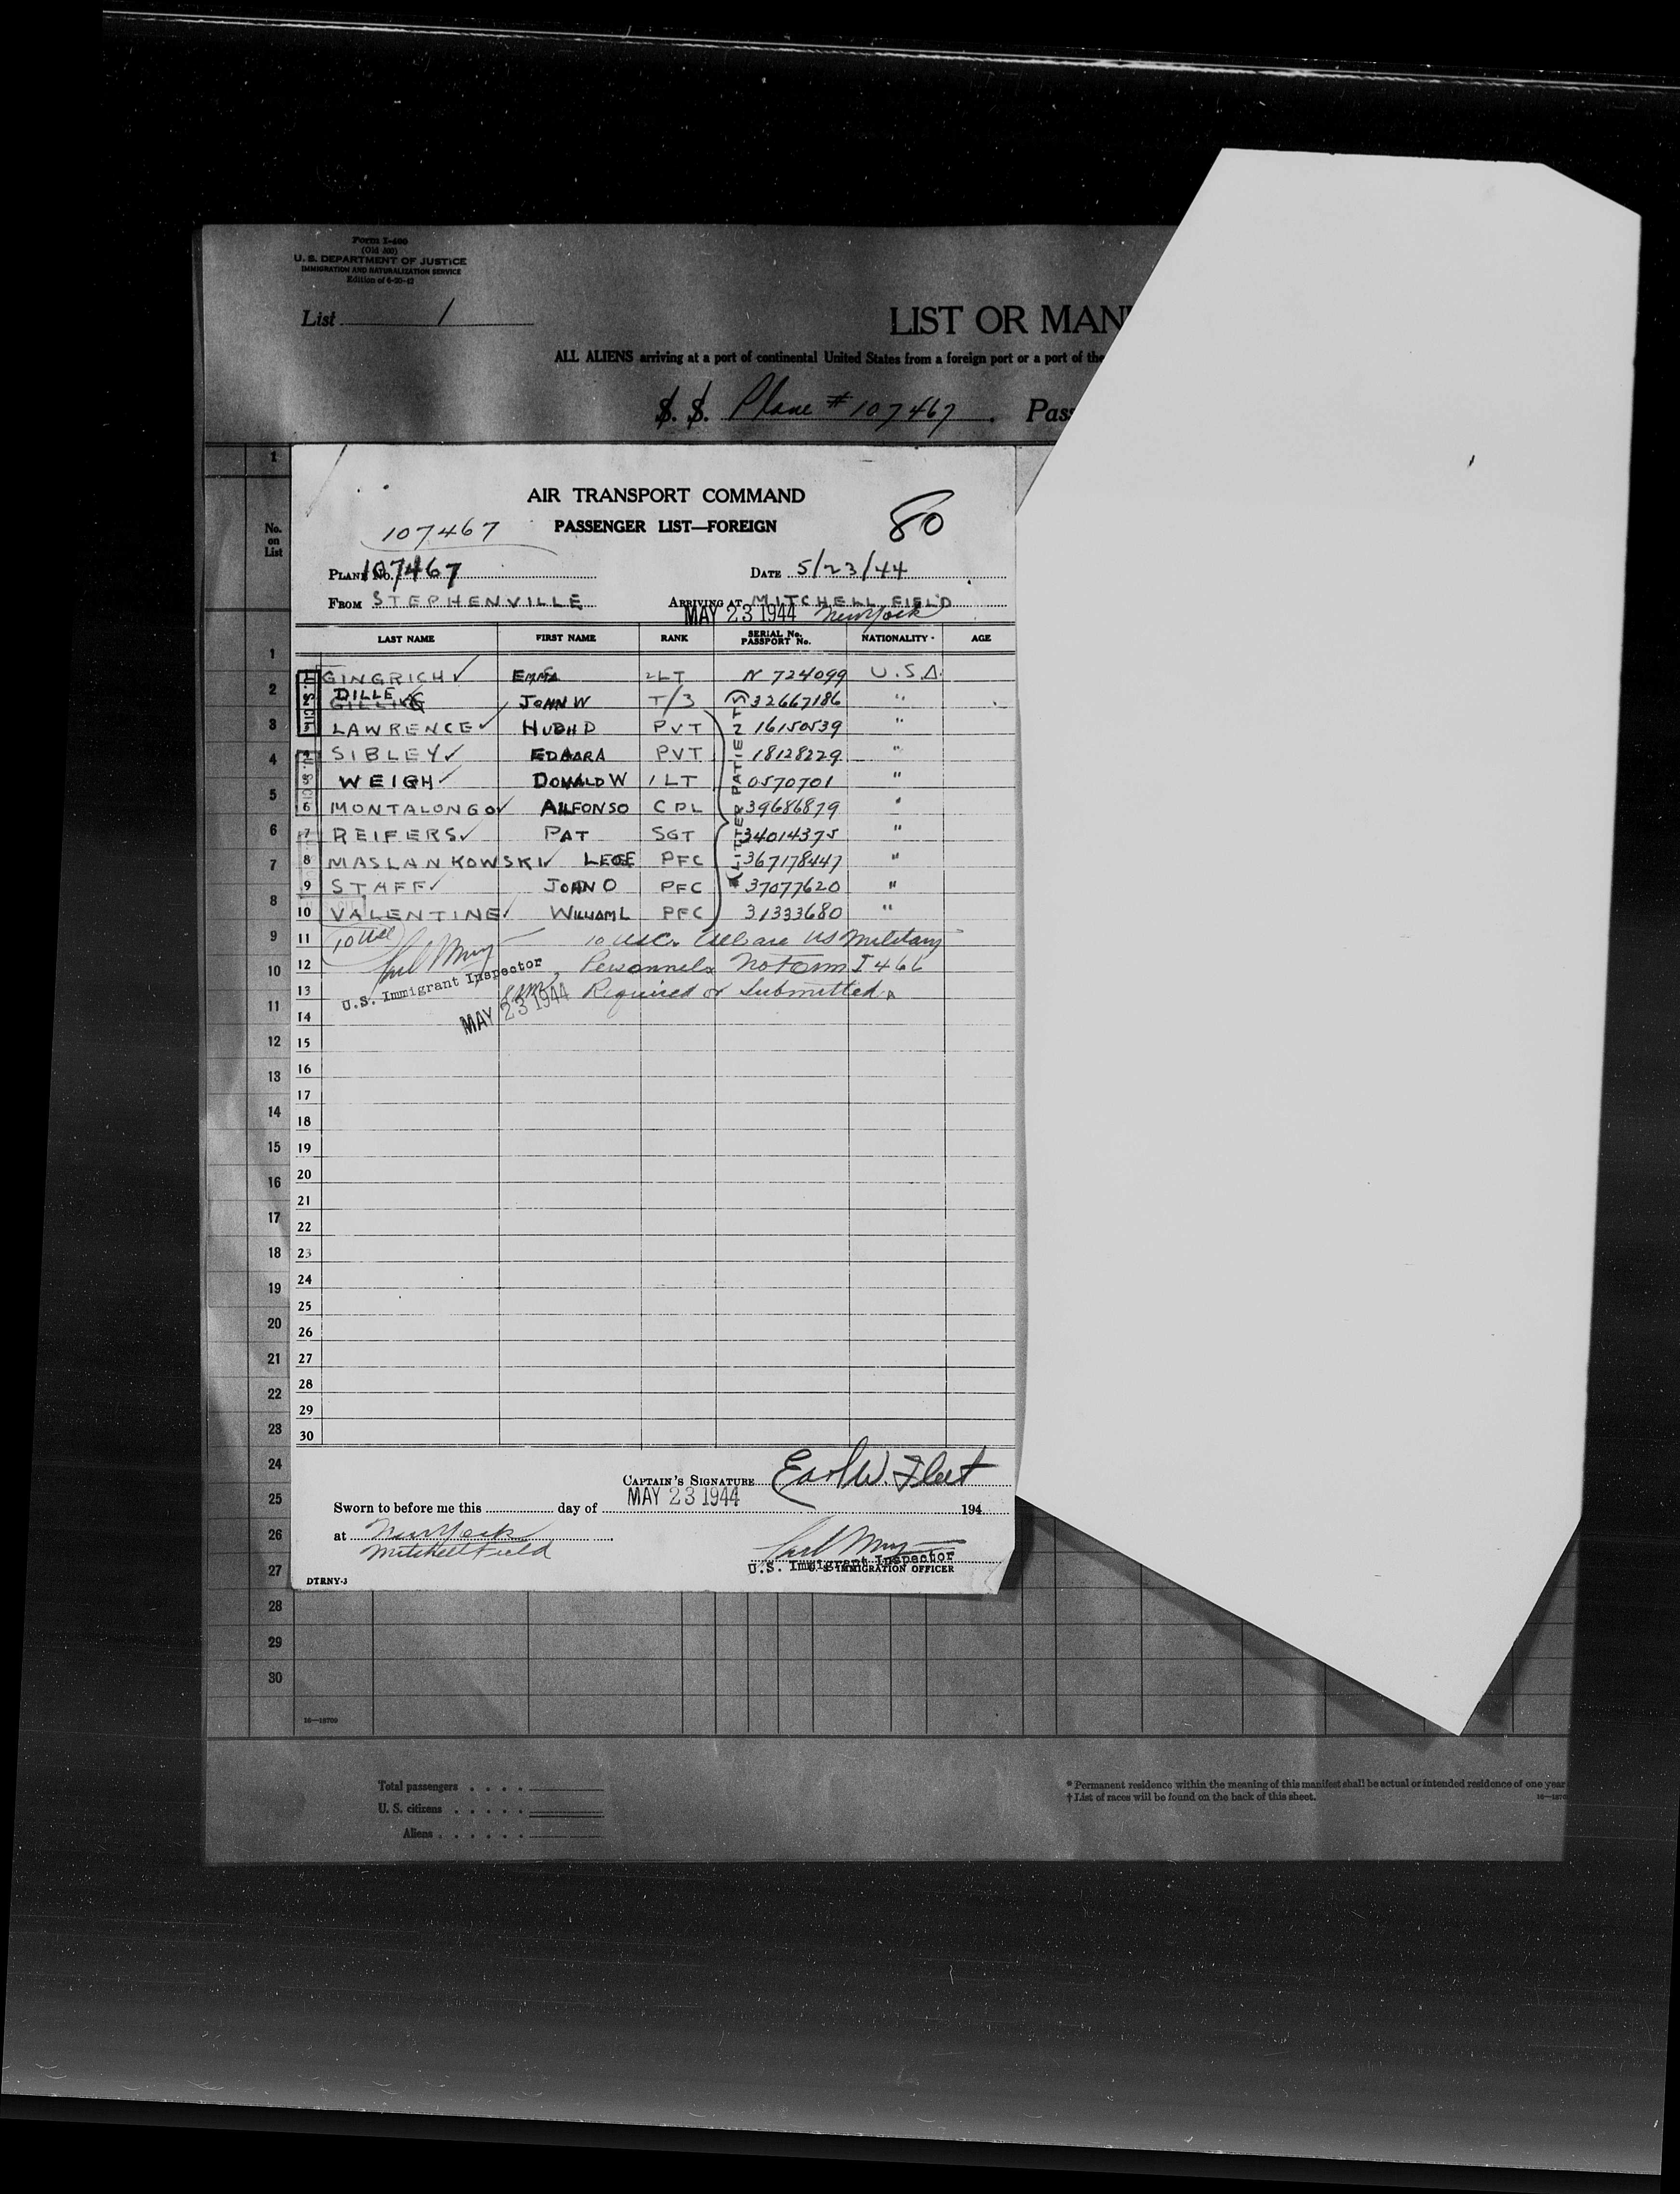 Form I-400
(Old 500)
U. S. DEPARTMENT OF JUSTICE
IMMIGRATION AND NATURALIZATION SERVICE
Edition of 6-20-42
List 1
LIST OR MAN
ALL ALIENS arriving at a port of continental United States from a foreign port or a port of the
S. S. Plane # 107467 Pas
AIR TRANSPORT COMMAND
107467 PASSENGER LIST—FOREIGN 80
PLANE NO. 107467 DATE 5/23/44
FROM STEPHENVILLE ARRIVING AT MITCHELL FIELD
MAY 23 1944 New York
LAST NAME FIRST NAME RANK SERIAL No. PASSPORT No. NATIONALITY AGE
GINGRICH ✓ EMMA 2LT N 724099 U.S.A.
DILLE ✓ JOHN W T/3 32667186 "
LAWRENCE ✓ HUGH D PVT 16150539 "
SIBLEY ✓ PVT 18128229 "
WEIGH ✓ DONALD W 1LT 0570701 "
6 MONTALONGO ✓ ALFONSO CPL 39686879 "
7 REIFERS ✓ PAT SGT 34014375 "
8 MASLANKOWSKI ✓ PFC 367178447 "
9 STAFF ✓ JOHN O PFC 37077620 "
10 VALENTINE ✓ WILLIAM L PFC 31333680 "
(LITTER PATIENTS)
11 10 USC 10 USC. All are US Military
12 Personnel. No Form I 466
13 Required or Submitted.
U.S. Immigrant Inspector
MAY 23 1944
14
15
16
17
18
19
20
21
22
23
24
25
26
27
28
29
30
CAPTAIN'S SIGNATURE Earl W. Fleet
Sworn to before me this day of MAY 23 1944 194
at New York
Mitchell Field
U.S. Immigrant Inspector
U. S. IMMIGRATION OFFICER
DTRNY-3
No. on List
1
2
3
4
5
6
7
8
9
10
11
12
13
14
15
16
17
18
19
20
21
22
23
24
25
26
27
28
29
30
16—18709
Total passengers
U. S. citizens
Aliens
* Permanent residence within the meaning of this manifest shall be actual or intended residence of one year
† List of races will be found on the back of this sheet.